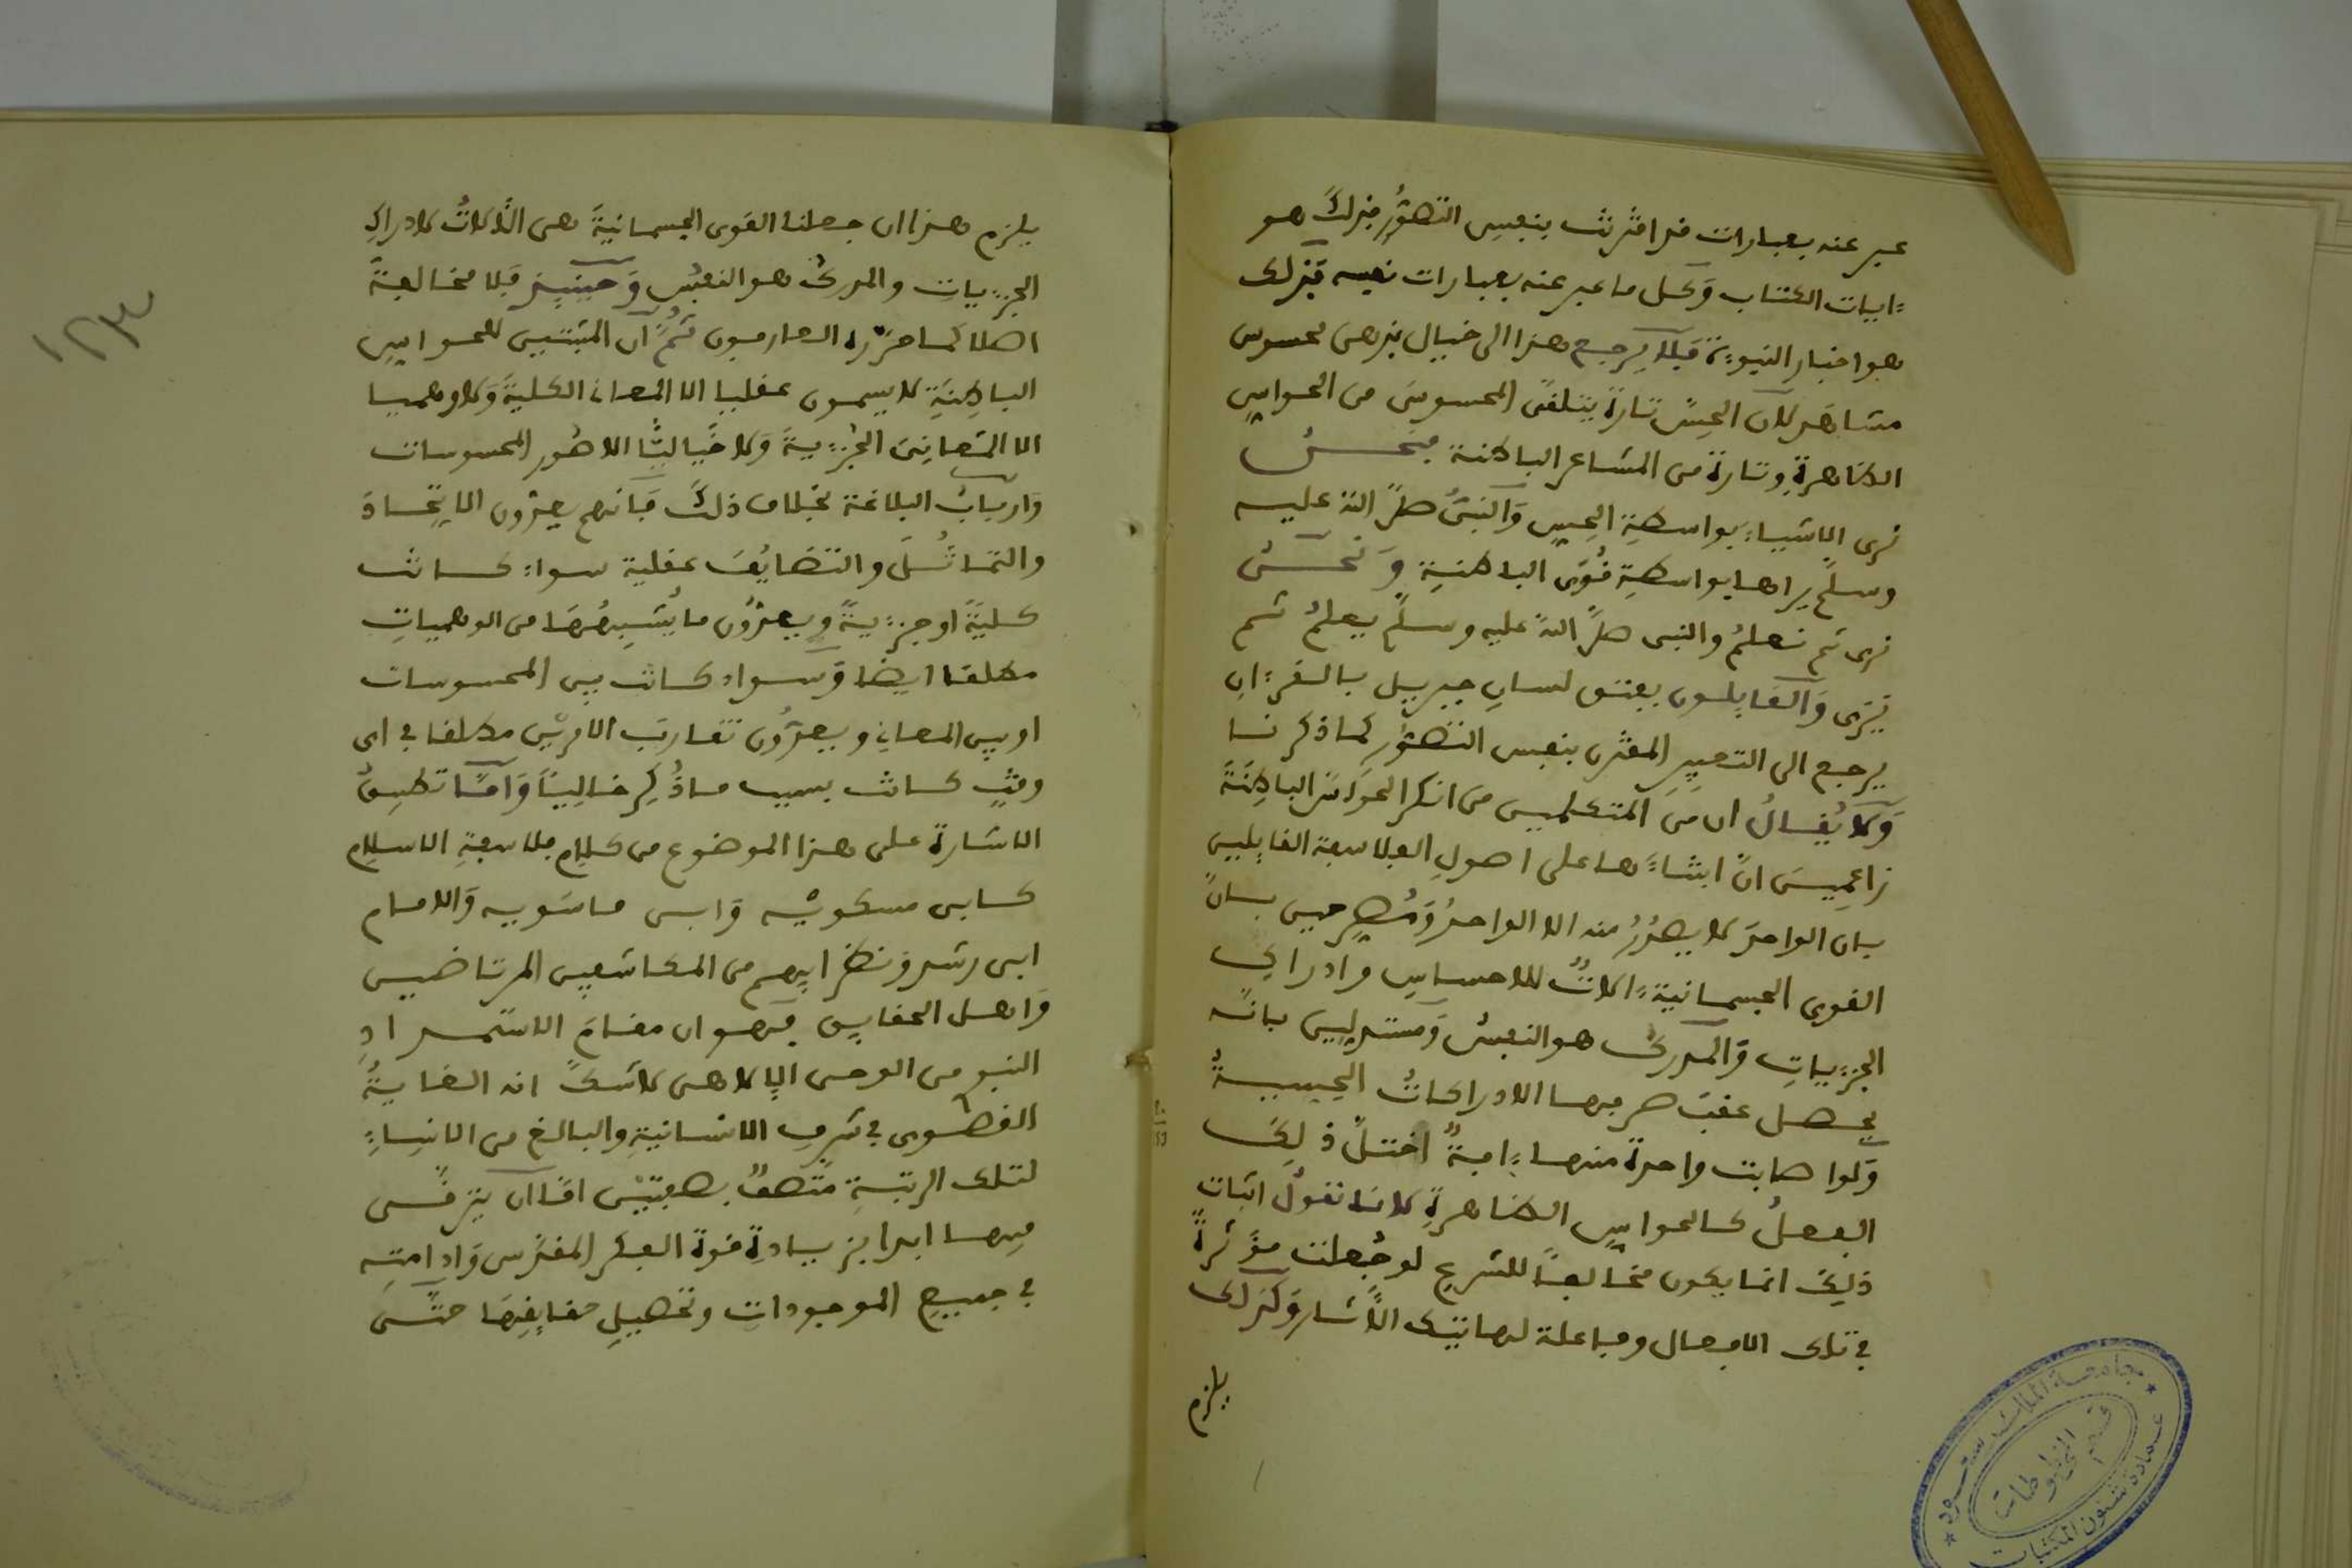 عبر عنه بعبارات قد اقترنت بنفس التصور فذلك هو
ءايات الكتاب وكل ما عبر عنه بعبارات نفسه فذلك
هو اخبار النبوءة فلا يرجع هذا الى خيال بذهن محسوس
مشاهد لان الحس تارة يتلقى المحسوس من الحواس
الظاهرة وتارة من المشاعر الباطنة فنحن
نرى الاشياء بواسطة الحس والنبي صلى الله عليه
وسلم يراها بواسطة قوى الباطنة ونحن
نرى ثم نعلم والنبي صلى الله عليه وسلم يعلم ثم
يرى والقايلون بفتق لسان جبريل بالقرءان
يرجع الى التعبير المقترن بنفس التصور كما ذكرنا
ولا يقال ان من المتكلمين من انكر الحواس الباطنة
زاعمين ان اثباتها على اصول الفلاسفة القايلين
بان الواحد لا يصدر منه الا الواحد ومصرحين بان
القوى الجسمانية ءالات للاحساس وادراك
الجزءيات والمدرك هو النفس ومستدلين بانه
يحصل عقب صرفها الادراكات الحسية
ولو اصابت واحدة منها ءافة اختل ذلك
الفعل كالحواس الظاهرة لانا نقول اثبات
ذلك انما يكون مخالفا للشرع لو جعلت مؤثرة
في تلك الافعال وفاعلة لهاتيك الآثار وكذلك
يلزم
يلزم هذا ان جعلنا القوى الجسمانية هي الآلات لادراك
الجزءيات والمدرك هو النفس وحينيذ فلا مخالفة
اصلا كما حرره العارفون ثم ان المثبتين للحواس
الباطنة لا يسمون عقليا الا المعاني الكلية ولا وهميا
الا المعاني الجزءية ولا خياليا الا صور المحسوسات
وارباب البلاغة بخلاف ذلك فانهم يعدون الاتحاد
والتماثل والتضايف عقلية سواء كانت
كلية او جزءية ويعدون ما يشبهها من الوهميات
مطلقا ايضا وسواء كانت بين المحسوسات
او بين المعاني ويعدون تقارب الامرين مطلقا في اي
وقت كانت بسبب ما ذكر خاليا واما تطبيق
الاشارة على هذا الموضوع من كلام فلاسفة الاسلام
كابن مسكويه وابن ماسويه والامام
ابن رشد ونظرايهم من المكاشفين المرتاضين
واهل الحقايق فهو ان مقام الاستمداد
النبو من الوحي الإلاهي لاشك انه الغاية
القصوى في شرف الانسانية والبالغ من الانساء
لتلك الرتبة متصف بصفتين اما ان يترقى
فيها ابدا بزيادة قوة الفكر المقدس وادامته
في جميع الموجودات وتحصيل حقايقها حتى
١٢٣
جامعة الملك سعود
قسم المخطوطات
عمادة شئون المكتبات